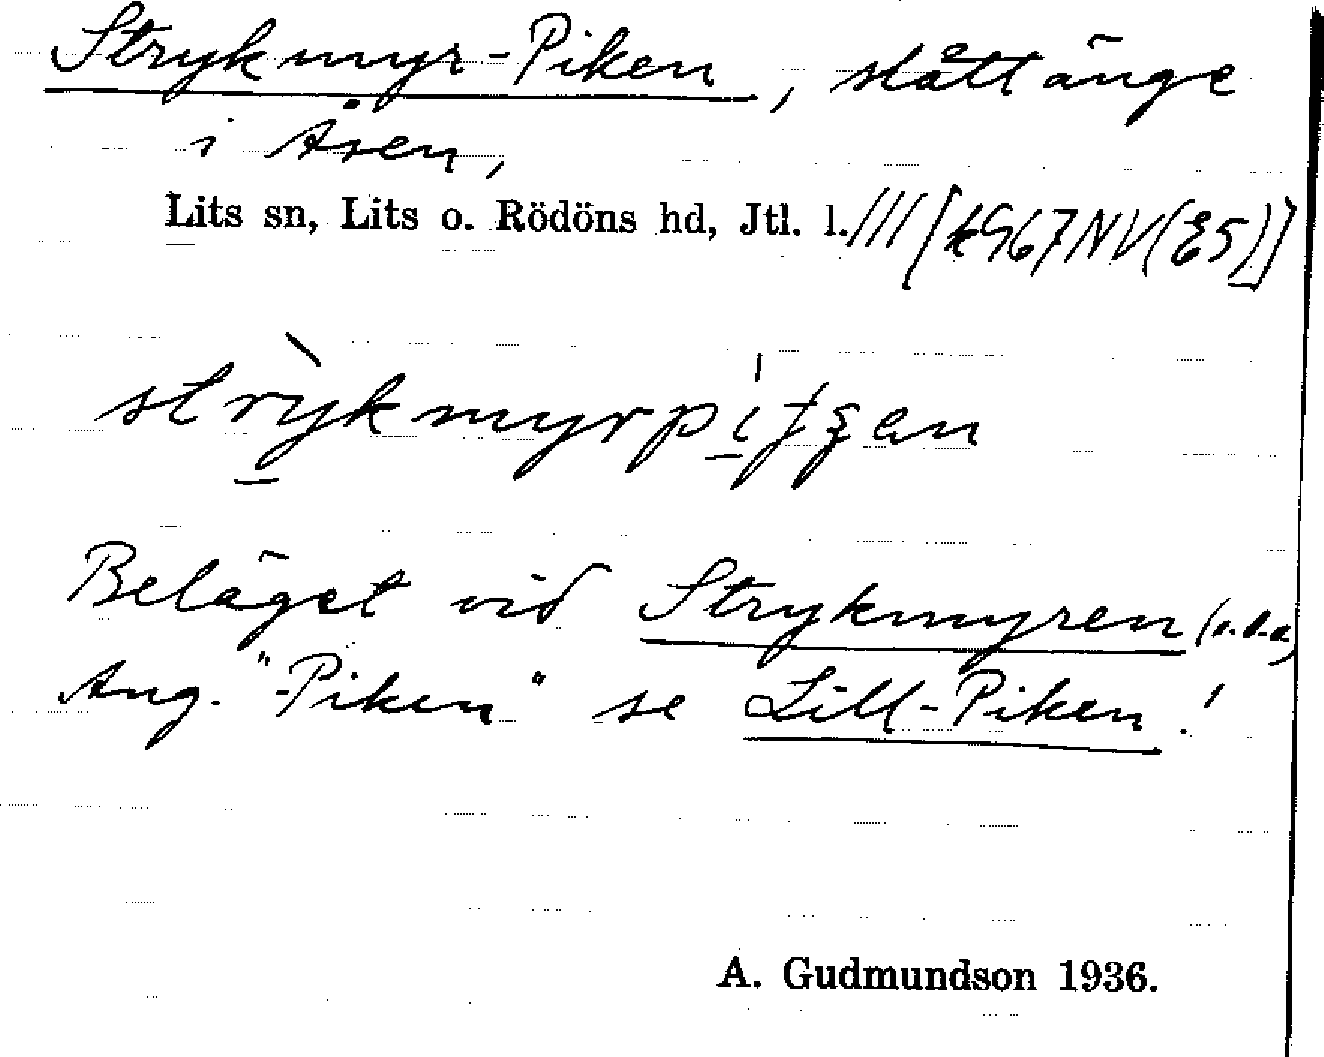 Strykmyr-Piken, slåttänge
i Åsen,
Lits sn, Lits o. Rödöns hd, Jtl. l.
Beläget vid Strykmyren (s.d.o)
Ang. "-Piken" se Lill-Piken!
A. Gudmundson 1936.